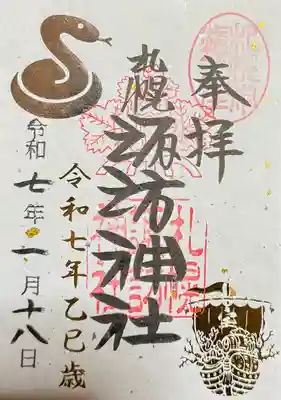 奉拝
札幌
諏訪神社
令和七年乙巳歳
令和七年一月十八日